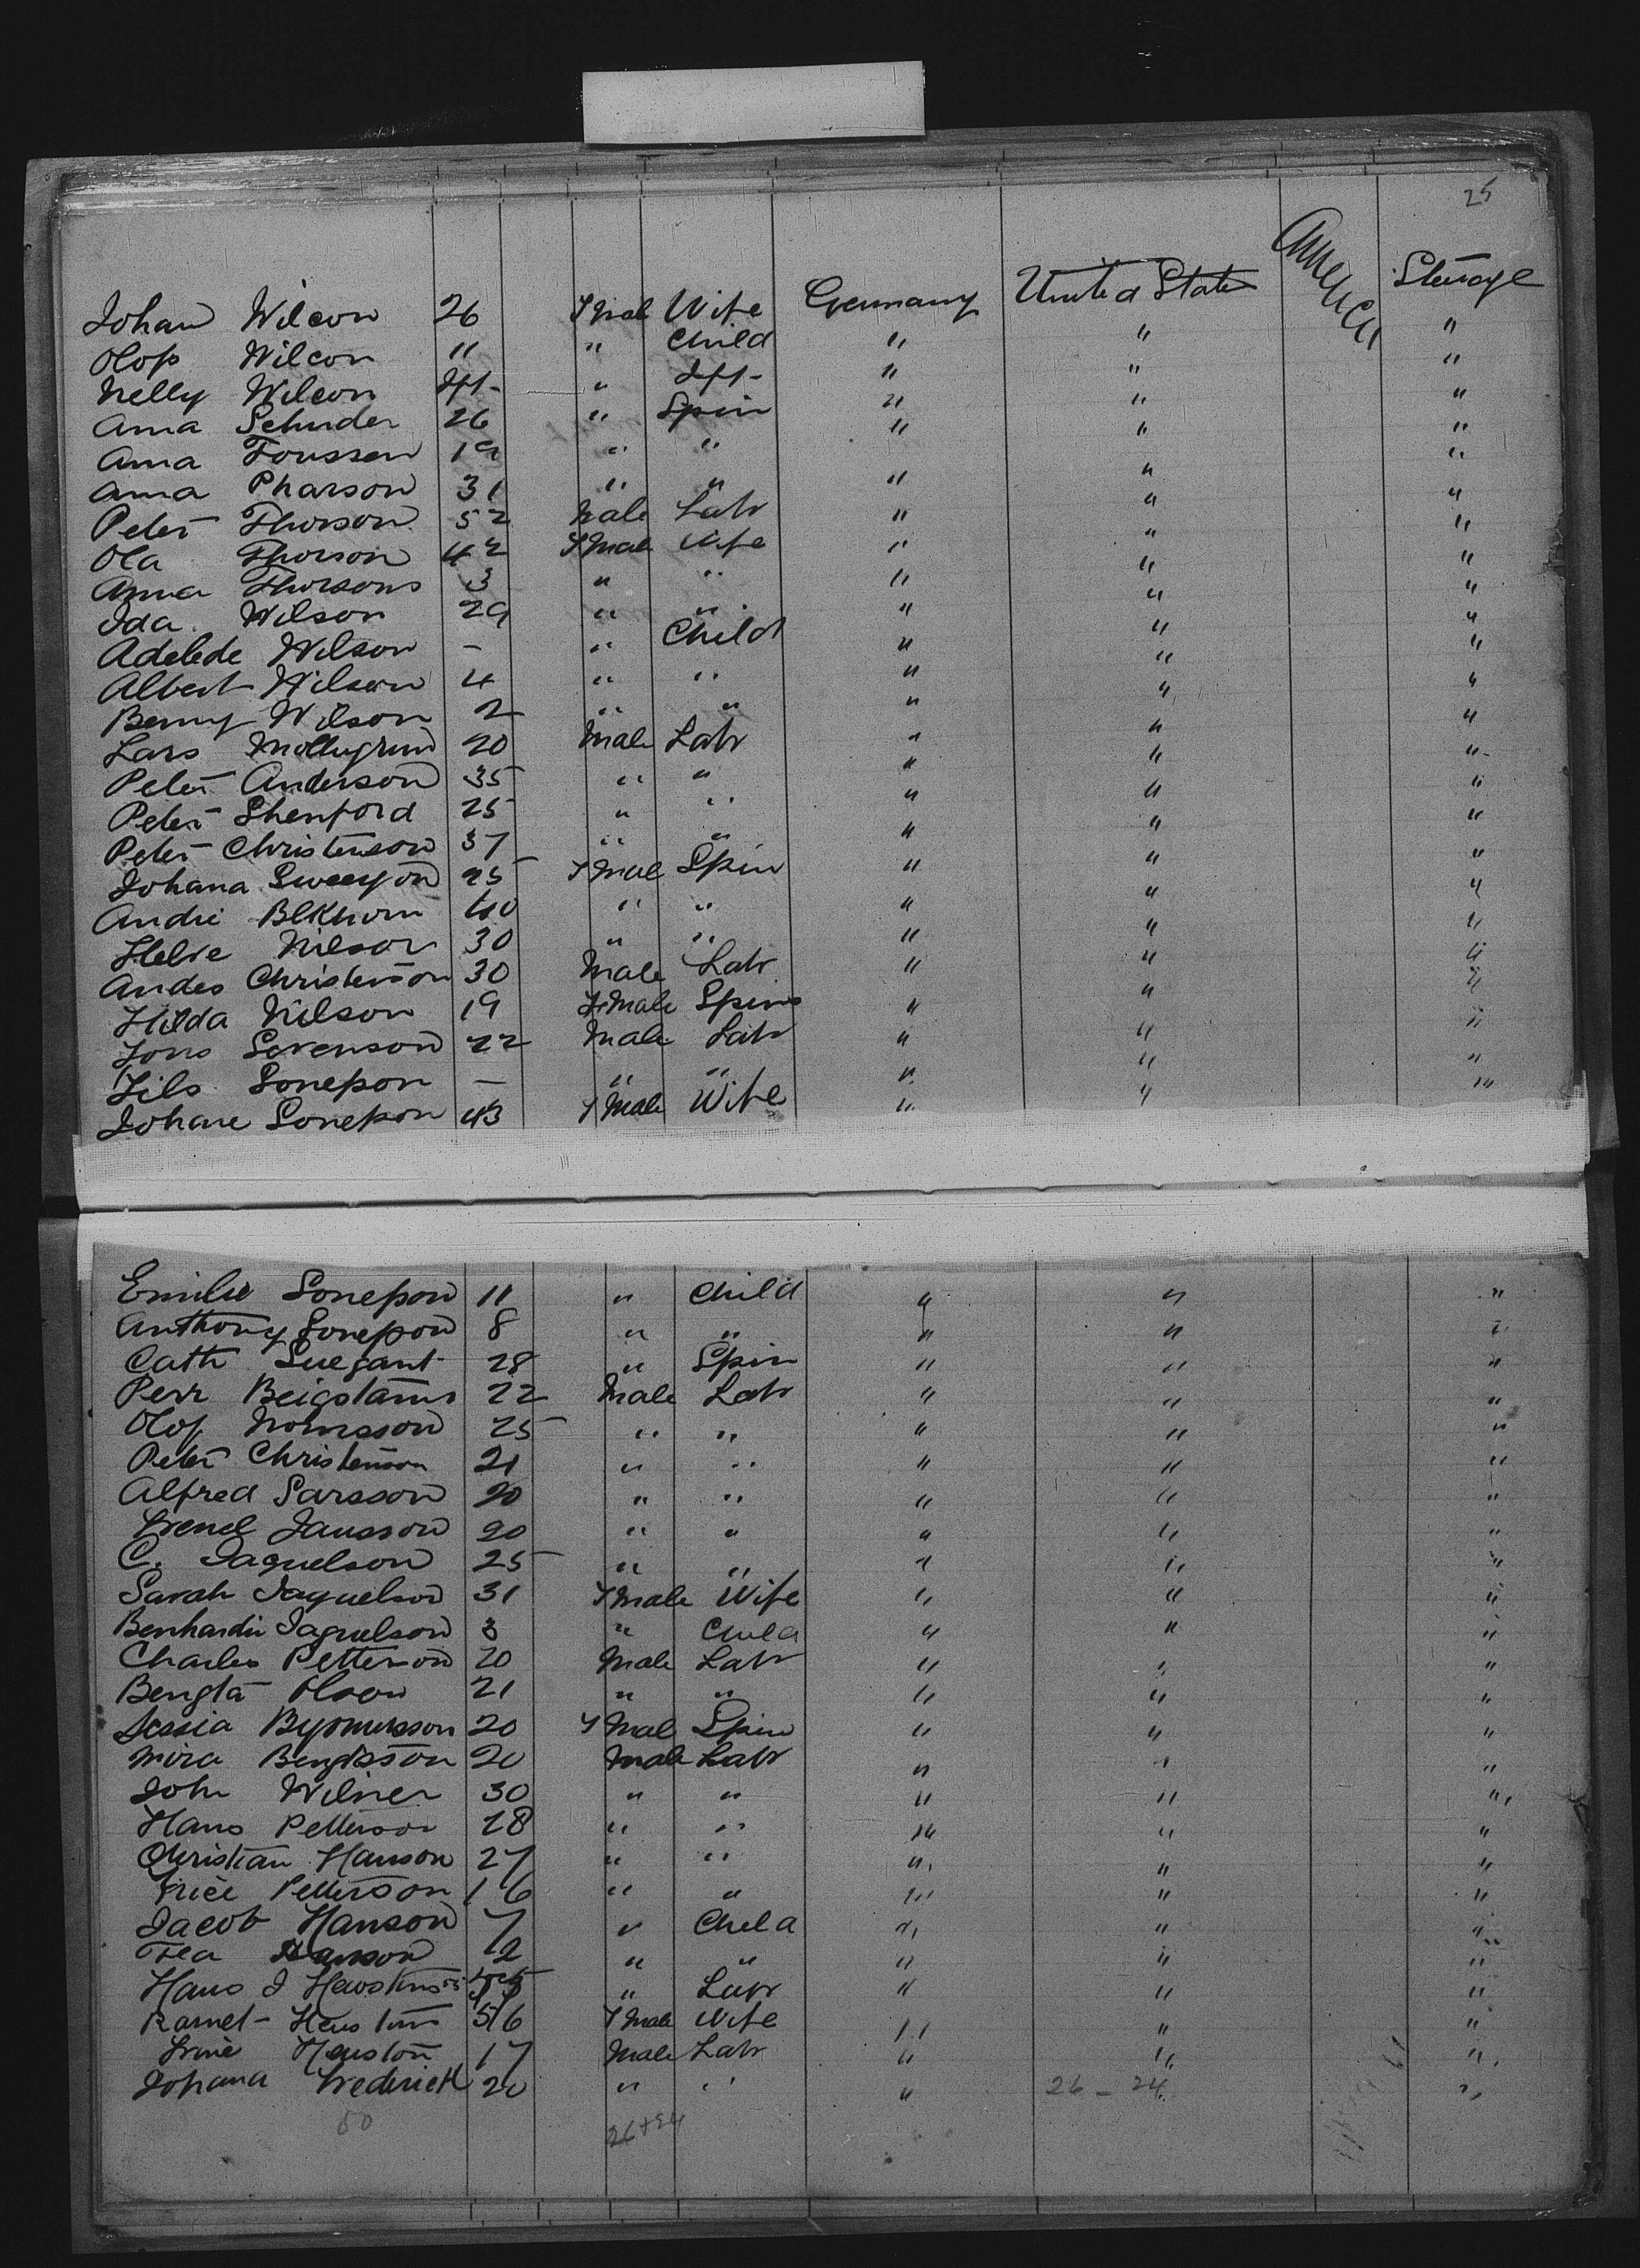 25
Johan Wilson 26 Fmal Wife Germany United State America Steerage
Olof Wilcon 11 " Child " " "
Nelly Wilcon Inf- " Inf- " " "
Anna Schuder 26 " Spin " " "
Anna Toussen 19 " " " " "
Anna Pharson 31 " " " " "
Peter Thorson 52 Male Labr " " "
Ola Thorson 42 Fmale Wife " " "
Anna Thorsons 3 " " " " "
Ida Wilson 29 " " " " "
Adelede Wilson — " Child " " "
Albert Wilson 4 " " " " "
Benny Wilson 2 " " " " "
Lars Mollugrund 20 Male Labr " " "
Peter Anderson 35 " " " " "
Peter Shenford 25 " " " " "
Peter Christenson 37 " " " " "
Johana 25 Fmal Spin " " "
Andre 40 " " " " "
Helve Nilson 30 " " " " "
Andes Christenson 30 Male Labr " " "
Hilda Nilson 19 Fmale Spins " " "
Jons Sevenson 22 Male Labr " " "
Fils Sonepon — " " " " "
Johane Sonepon 43 Fmale Wife " " "
Emilie Sonepon 11 " Child " " "
Anthony Sonepon 8 " " " " "
Cath Suegant 28 " Spin " " "
Perr 22 Male Labr " " "
Olof 25 " " " " "
Peter Christenson 21 " " " " "
Alfred Sarsson 20 " " " " "
Jansson 20 " " " " "
C. Jaguelson 25 " " " " "
Sarah Jaguelson 31 Fmale Wife " " "
Benhardi Jaguelson 3 " Child " " "
Charles Petterson 20 Male Labr " " "
Bengta Olson 21 " " " " "
Jessia 20 Fmal Spin " " "
Mira Bengtsson 20 Male Labr " " "
John Wilner 30 " " " " "
Hans Petterson 28 " " " " "
Christian Hanson 27 " " " " "
Petterson 16 " " " " "
Jacob Hanson 7 " Child " " "
Hanson 2 " " " " "
Hans J " Labr " " "
56 Fmale Wife " " "
Heuston 17 Male Labr " " "
Johana Frederick 20 " " " 26 - 24 "
50 26+24